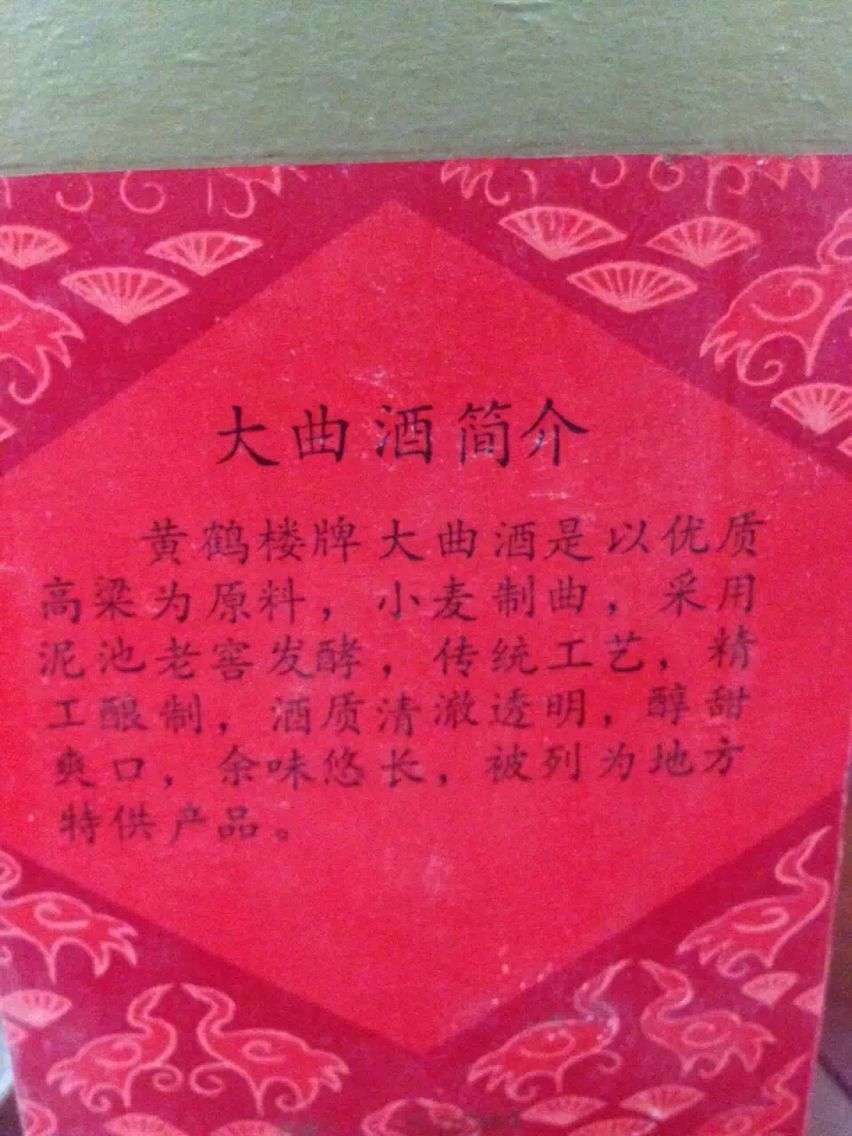 大曲酒简介
黄鹤楼牌大曲酒是以优质
高梁为原料，小麦制曲，采用
泥池老窖发酵，传统工艺，精
工酿制，酒质清澈透明，醇甜
爽口，余味悠长，被列为地方
特供产品。